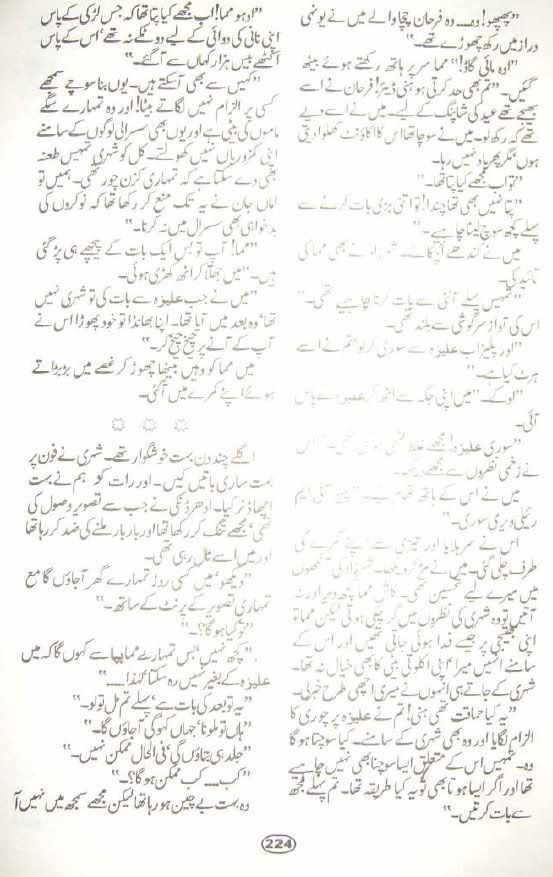 "پھپھو! وہ.... وہ فرحان چچا والے میں نے یونہی
دراز میں رکھ چھوڑے تھے۔"
"اوہ مائی گاڈ!" مما سر پر ہاتھ رکھتے ہوئے بیٹھ
گئیں۔ "تم بھی حد کرتی ہو بنی ڈیئر! فرحان نے اسے
بھیجے تھے عید کی شاپنگ کے لیے۔ میں نے اسے دیے
تھے کہ رکھ لو۔ میں نے سوچا تھا اس کا اکاؤنٹ کھلوا دیتی
ہوں مگر پھر یاد نہیں رہا۔
"تو اب مجھے کیا پتا تھا۔"
"پتا نہیں بھی تھا چندا! تو اتنی بڑی بات کرنے سے
پہلے کچھ سوچ لینا چاہیے۔"
میں نے کندھے اچکائے۔ شہرزاد نے بھی مما کی
تائید کی۔
"تمہیں پہلے آنٹی سے بات کرنا چاہیے تھی۔"
اس کی آواز سرگوشی سے بلند تھی۔
"اور پلیز اب علیزہ سے سوری کر لو تم نے اسے
ہرٹ کیا ہے۔"
"اوکے۔" میں اپنی جگہ سے اٹھ کر علیزہ کے پاس
آئی۔
"سوری علیزہ! مجھے غلط فہمی ہوئی تھی۔" اس
نے زخمی نظروں سے مجھے دیکھا۔
میں نے اس کے ہاتھ تھام لیے۔ آئی ایم
رئیلی ویری سوری۔"
اس نے سر ہلایا اور تیزی سے اپنے کمرے کی
طرف چلی گئی۔ میں نے مڑ کر دیکھا۔ شہرزاد کی آنکھوں
میں میرے لیے تحسین تھی۔ کاش مما کچھ دیر اور نہ
آتیں تو وہ شہری کی نظروں میں گر چکی ہوتی لیکن مما تو
اپنی بھتیجی پر جیسے فدا ہوئی جاتی تھیں اور اس کے
سامنے انہیں میرا، اپنی اکلوتی بیٹی کا بھی خیال نہ تھا۔
شہری کے جاتے ہی انہوں نے میری اچھی طرح خبر لی۔
"یہ کیا حماقت تھی ہنی! تم نے علیزہ پر چوری کا
الزام لگایا اور وہ بھی شہری کے سامنے۔ کیا سوچتا ہوگا
وہ۔ تمہیں اس کے متعلق ایسا سوچنا بھی نہیں چاہیے
تھا اور اگر ایسا ہوتا بھی تو یہ کیا طریقہ تھا۔ تم پہلے مجھ
سے بات کرتیں۔"
"اوہو مما! اب مجھے کیا پتا تھا کہ جس لڑکی کے پاس
اپنی نانی کی دوائی کے لیے دو ٹکے نہ تھے، اس کے پاس
اکٹھے بیس ہزار کہاں سے آ گئے۔
"کہیں سے بھی آ سکتے ہیں۔ یوں بنا سوچے سمجھے
کسی پر الزام نہیں لگاتے بیٹا! اور وہ تمہارے سگے
ماموں کی بیٹی ہے اور یوں بھی سسرالی لوگوں کے سامنے
اپنی کمزوریاں نہیں کھولتے۔ کل کو شہری تمہیں طعنہ
بھی دے سکتا ہے کہ تمہاری کزن چور تھی۔ ہمیں تو
اماں جان نے یہ تک منع کر رکھا تھا کہ نوکروں کی
بدخواہی بھی سسرال میں نہ کرنا۔"
"مما! آپ تو بس ایک بات کے پیچھے ہی پڑ گئی
ہیں۔" میں جھلا کر اٹھ کھڑی ہوئی۔
"میں نے جب علیزہ سے بات کی تو شہری نہیں
تھا، وہ بعد میں آیا تھا۔ اپنا بھانڈا تو خود پھوڑا اس نے
آپ کے آنے پر چیخ چیخ کر۔"
میں مما کو وہیں بیٹھا چھوڑ کر غصے میں بڑبڑاتے
ہوئے اپنے کمرے میں آ گئی۔
اگلے چند دن بہت خوشگوار تھے۔ شہری نے فون پر
بہت ساری باتیں کیں۔ اور رات کو ہم نے بہت
اچھا ڈنر کیا۔ ادھر ڈنکی نے جب سے تصویر وصول کی
تھی، مجھے تنگ کر رکھا تھا اور بار بار ملنے کی ضد کر رہا تھا
اور میں اسے ٹال رہی تھی۔
"دیکھو، میں کسی روز تمہارے گھر آ جاؤں گا مع
تمہاری تصویر کے پرنٹ کے ساتھ۔"
"تو کیا ہوگا؟۔"
"کچھ نہیں، بس تمہارے مما پپا سے کہوں گا کہ میں
علیزہ کے بغیر نہیں رہ سکتا، لہٰذا......"
"یہ تو بعد کی بات ہے، پہلے تم مل تو لو۔"
"ہاں تو ملو نا، جہاں کہو گی آ جاؤں گا۔"
"جلد ہی بتاؤں گی، فی الحال ممکن نہیں۔"
"کب.... کب ممکن ہوگا؟۔"
وہ بہت بے چین ہو رہا تھا لیکن مجھے سمجھ میں نہیں آ
224